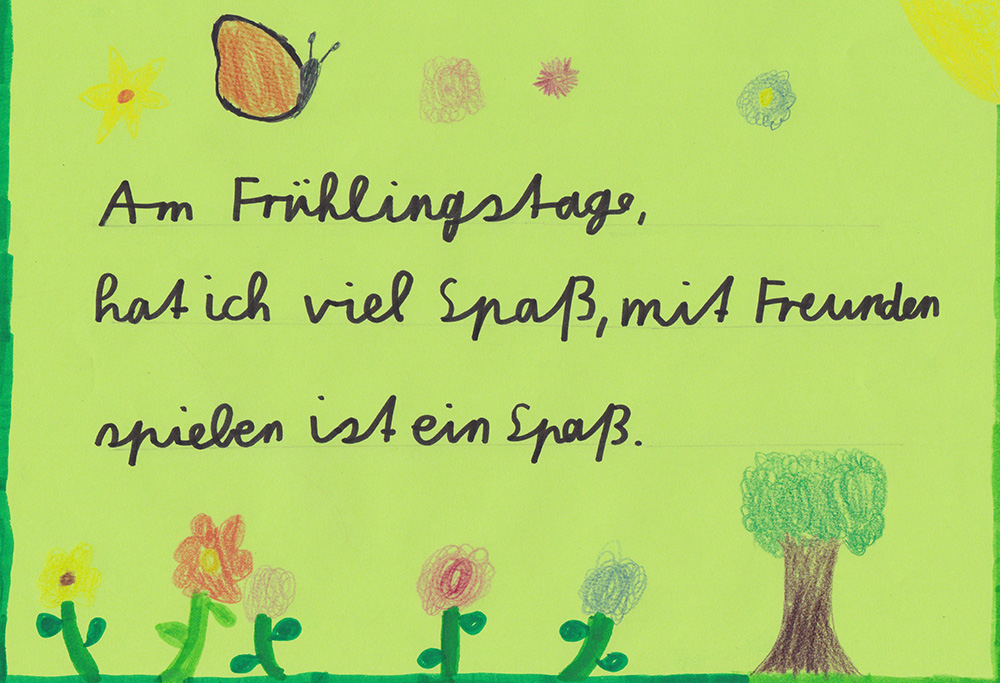 Am Frühlingstage,
hat ich viel Spaß, mit Freunden
spielen ist ein Spaß.